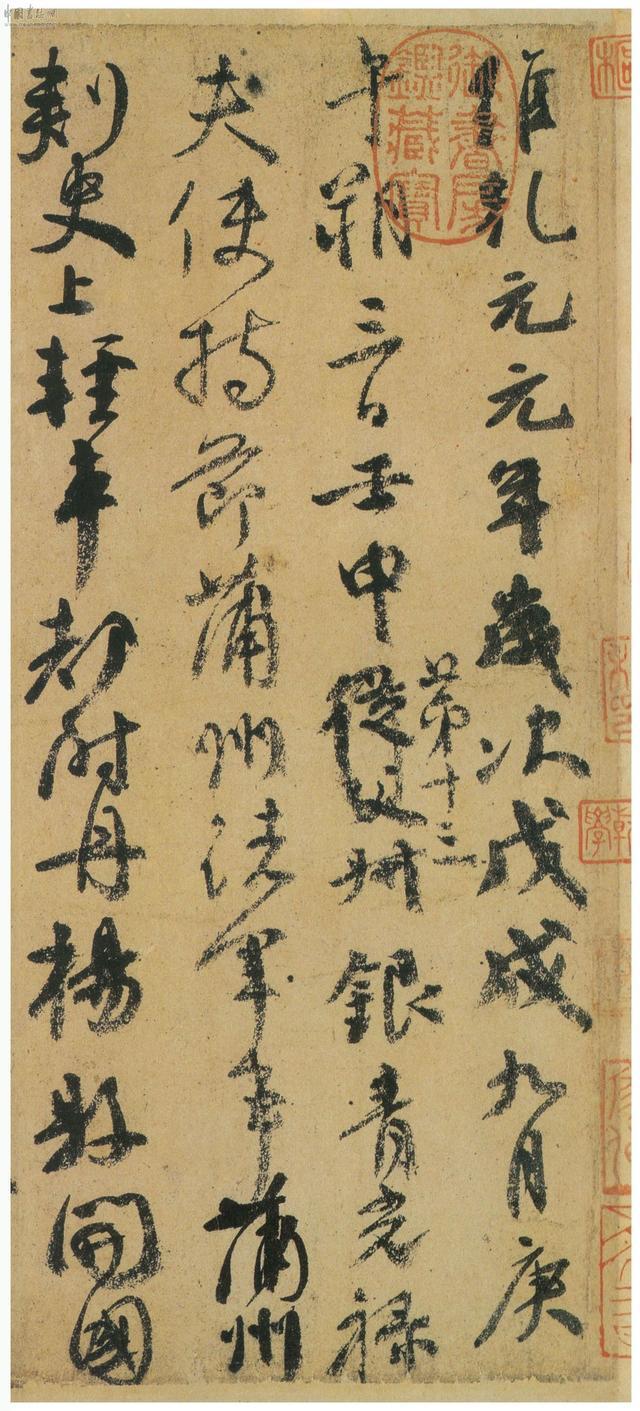 維乾元元年歲次戊戌九月庚
午朔三日壬申從父叔銀青光祿
第十三
夫使持節蒲州諸軍事蒲州
刺史上輕車都尉丹楊縣開國
御書房
鑑藏寶